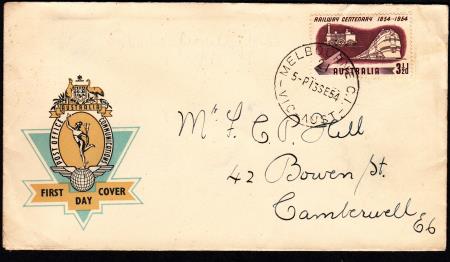 RAILWAY CENTENARY 1854-1954
AUSTRALIA 3½D
MELBOURNE. C.1.
21
5-P 13SE54
VIC-AUST
AUSTRALIA
POST OFFICE COMMUNICATIONS
FIRST DAY COVER
Mr F. C. P. Hill
42 Bowen St.
Camberwell
E6